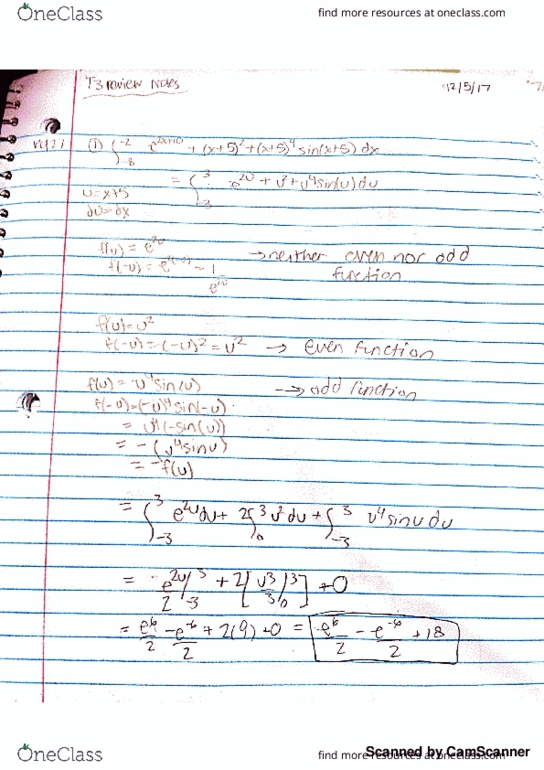 OneClass
find more resources at oneclass.com
T3 review Notes
12/5/17
① ∫_{-8}^{-2} e^{2x+10} + (x+5)² + (x+5)⁴ sin(x+5) dx
= ∫_{-3}^{3} e^{2u} + u² + u⁴ sin(u) du
u = x+5
du = dx
f(u) = e^{2u} → neither even nor odd
f(-u) = e^{2(-u)} = 1/e^{2u} function
f(u) = u²
f(-u) = (-u)² = u² → even function
f(u) = u⁴ sin(u) → odd function
f(-u) = (-u)⁴ sin(-u)
= u⁴(-sin(u))
= -(u⁴ sinu)
= -f(u)
= ∫_{-3}^{3} e^{2u} du + 2∫_{0}^{3} u² du + ∫_{-3}^{3} u⁴ sinu du
= e^{2u}/2 |_{-3}^{3} + 2[u³/3 |_{0}^{3}] + 0
= e⁶/2 - e^{-6}/2 + 2(9) + 0 = e⁶/2 - e^{-6}/2 + 18
OneClass
find more resources at oneclass.com
Scanned by CamScanner